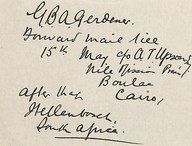 G B A Gerdener.
Forward mail till
15th May c/o A. T. Upson
Nile Mission Press
Boulac
Cairo,
after that
Stellenbosch,
South Africa.